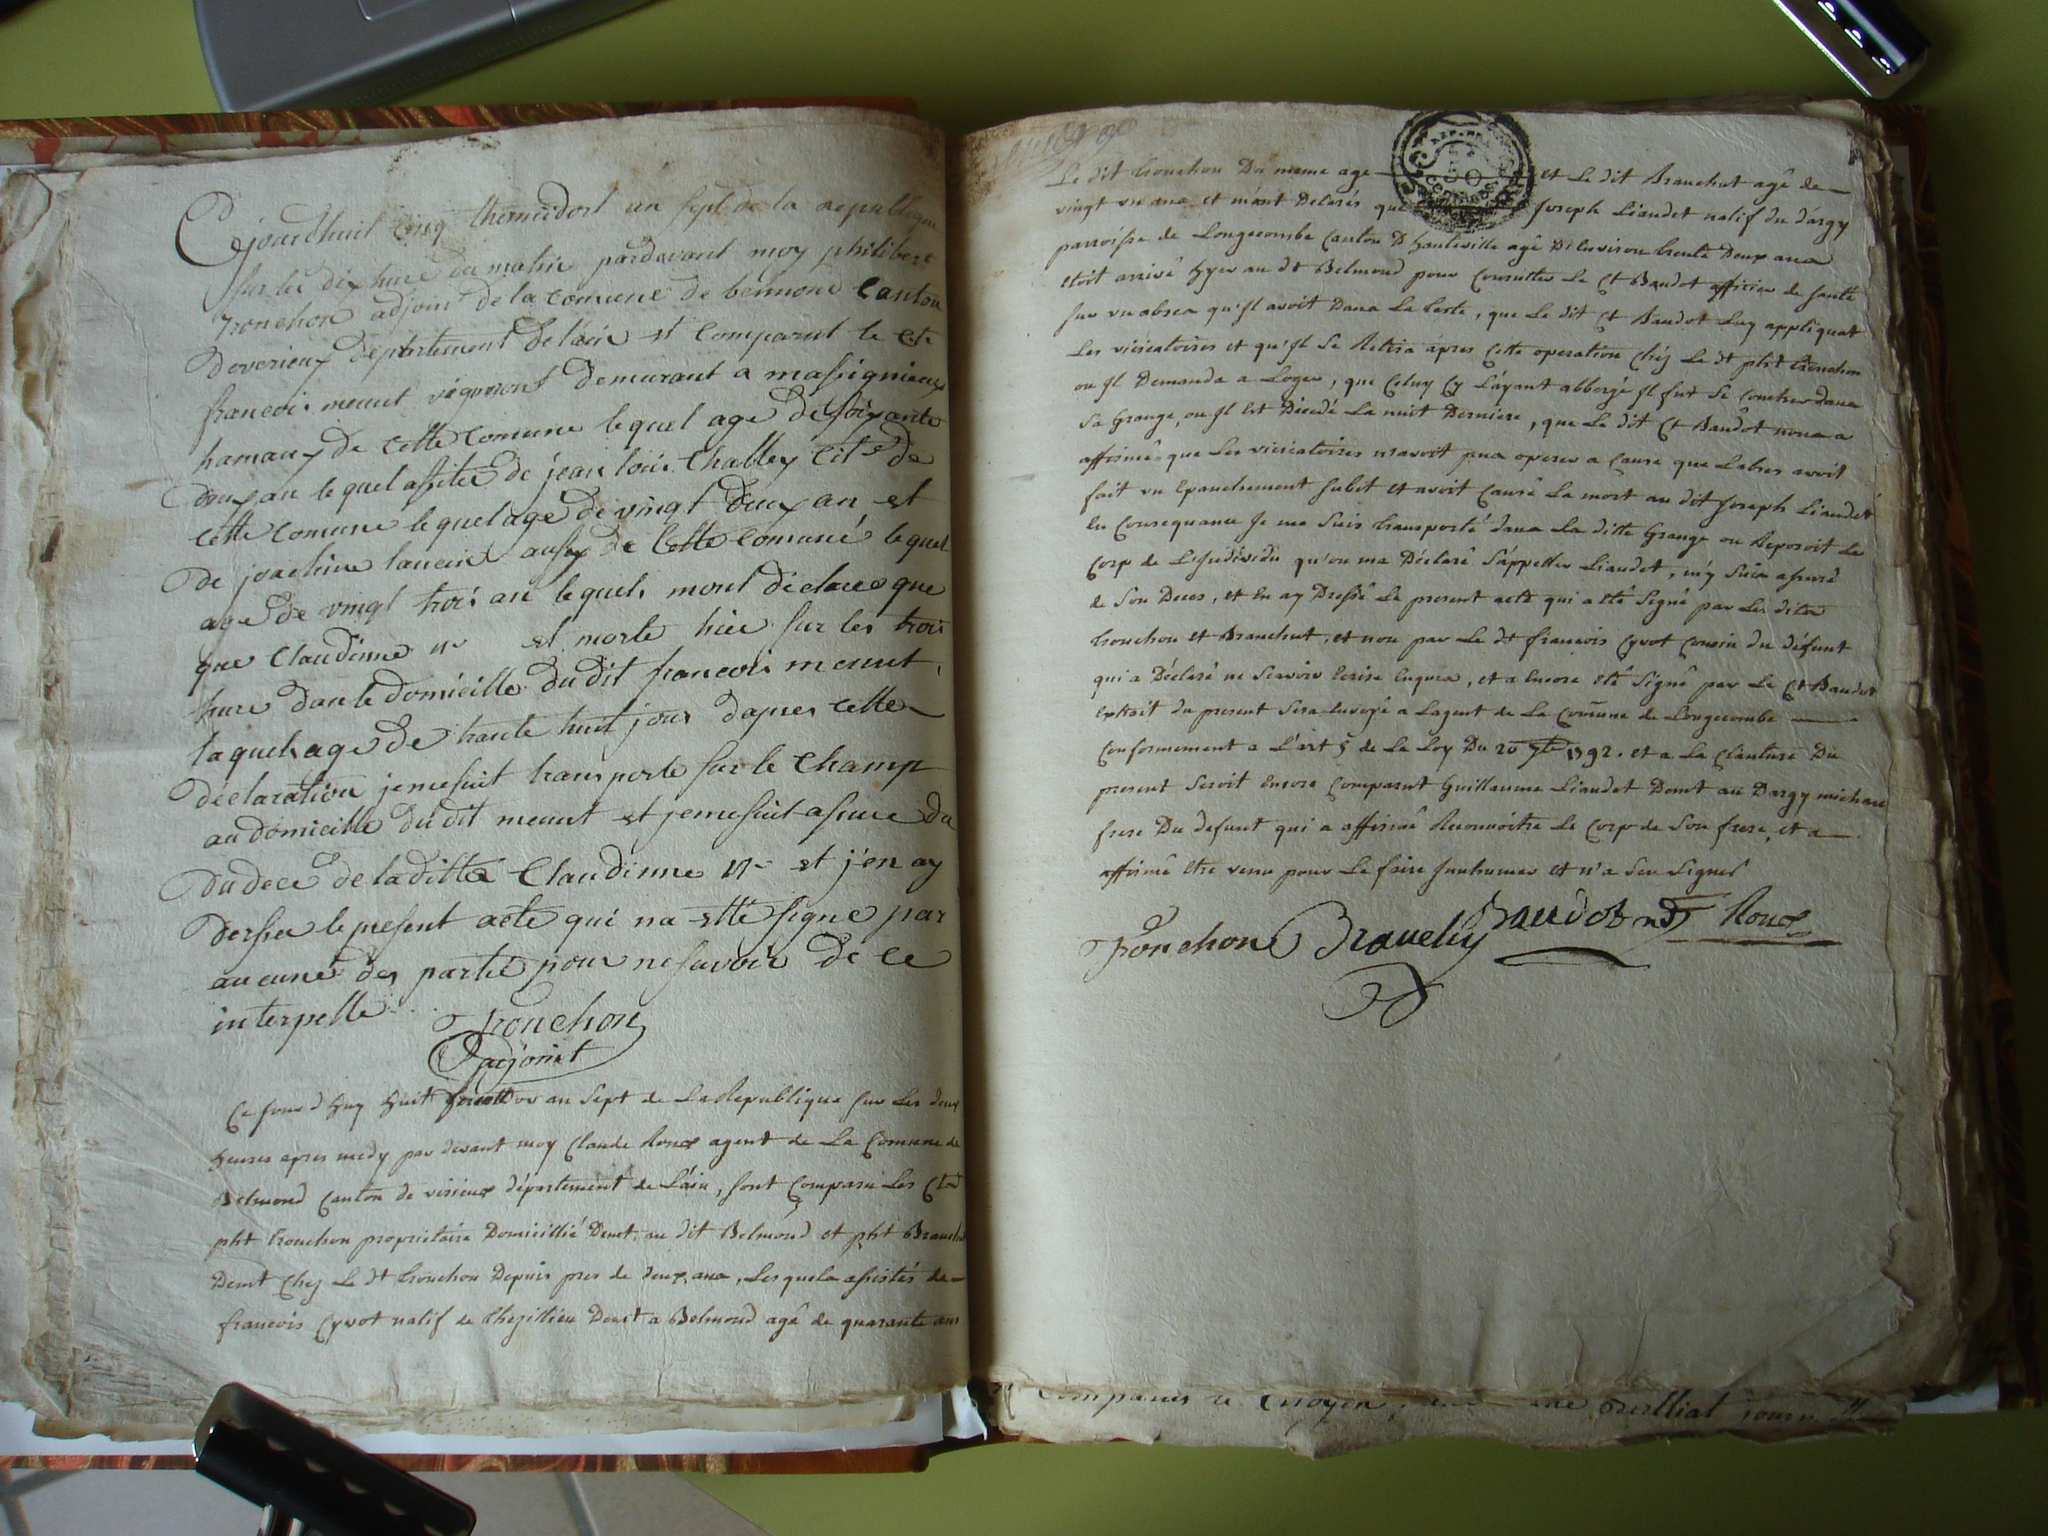 Cejourdhuit cinq thermidort an sept de la republique
sur les dix hure du matin pardevant moy philibert
tronchon adjoint de la comune de belmond Canton
de verieux departement de lain est comparut le cit
francois meunt vigneront demurant a massignieux
hamaux de cette comune lequel age de soixante
deux an lequel assités de jean louis Challey cit de
cette comune lequel age de vingt deux an et
de joachin lancin aussy de cette comune lequel
age de vingt trois an lequels mont déclares que
que Claudinne n est morte hier sur les trois
hure dans le domicille du dit francois meunt
laquelle age de trante huit jour dapres cette
déclaration je me suit transporte sur le champ
au domicille du dit meunt et je me suit assure du
du dece de la ditte Claudinne n et j'en ay
dersser le present acte qui na etté signe par
aucune des partie pour ne savoir de ce
interpelle
Tronchon
adjoint
Ce jourd huy huit fructidor an sept de La Republique sur Les deux
heures apres midy par devant moy Claude Roux agent de La Comune de
Belmond Canton de virieux département de L'ain, sont Comparu Les Ctns
pht tronchon propriétaire Domicillié Demt. au dit Belmond et pht Branchut
Demt Chez Le dt tronchon Depuis pres de deux ans, Lesquels assistés de
francois Cyvot natif de Chezillieu Demt a Belmond agé de quarante ans
Le dit tronchon Du meme age et Le dit Branchut agé de
vingt un ans et m'ont Delarés que Joseph Liaudet natif du dargy
parroisse de Longecombe Canton D hauteville agé D'environ trente Deux ans
etoit arrivé hyer au dt Belmond pour Consulter Le Ct Baudot officier de santé
sur un abses qu'Il avoit Dans La teste, que Le dit Ct Baudot Luy appliquat
Les vicicatoires et qu'Il Se Retira apres Cette operation Chéz Le dt pht tronchon
ou Il Demanda a Loger, que Celuy Cy L'ayant abbergé Il fut Se Coucher dans
Sa Grange, ou Il Est Décédé La nuit Derniere, que Le dit Ct Baudot nous a
affirmé que Les vicicatoires n'avoit pus operer a Cause que Labses avoit
fait un Epanchement Subit et avoit Causé La mort au dit Joseph Liaudet
En Consequance Je me Suis transporté dans La ditte Grange ou Reposoit Le
Corp de L'Individu qu'on ma Déclaré S'appeller Liaudet, m'y Suis assuré
de Son Deces, et En ay Dressé Le present acte qui a eté Signé par Les dits
tronchon et Branchut, et non par Le dt francois Cyvot Cousin du défunt
qui a Déclaré ne Scavoir Ecrire Enquis, et a Encore eté Signé par Le Ct Baudot
Extrait du present Sera Envoyé a Lagent de La Comune de Longecombe
Conformement a L'art 5 de La Loy Du 20 7bre 1792. et a La Clauture Du
present Seroit Encore Comparut Guillaume Liaudet Demt au Dargy
frere Du defunt qui a affirmé Reconnoitre Le Corp de Son frere, et a
affirmé Etre venu pour Le faire Inhumer et n'a Seu Signer
Tronchon Branchu Baudot Roux